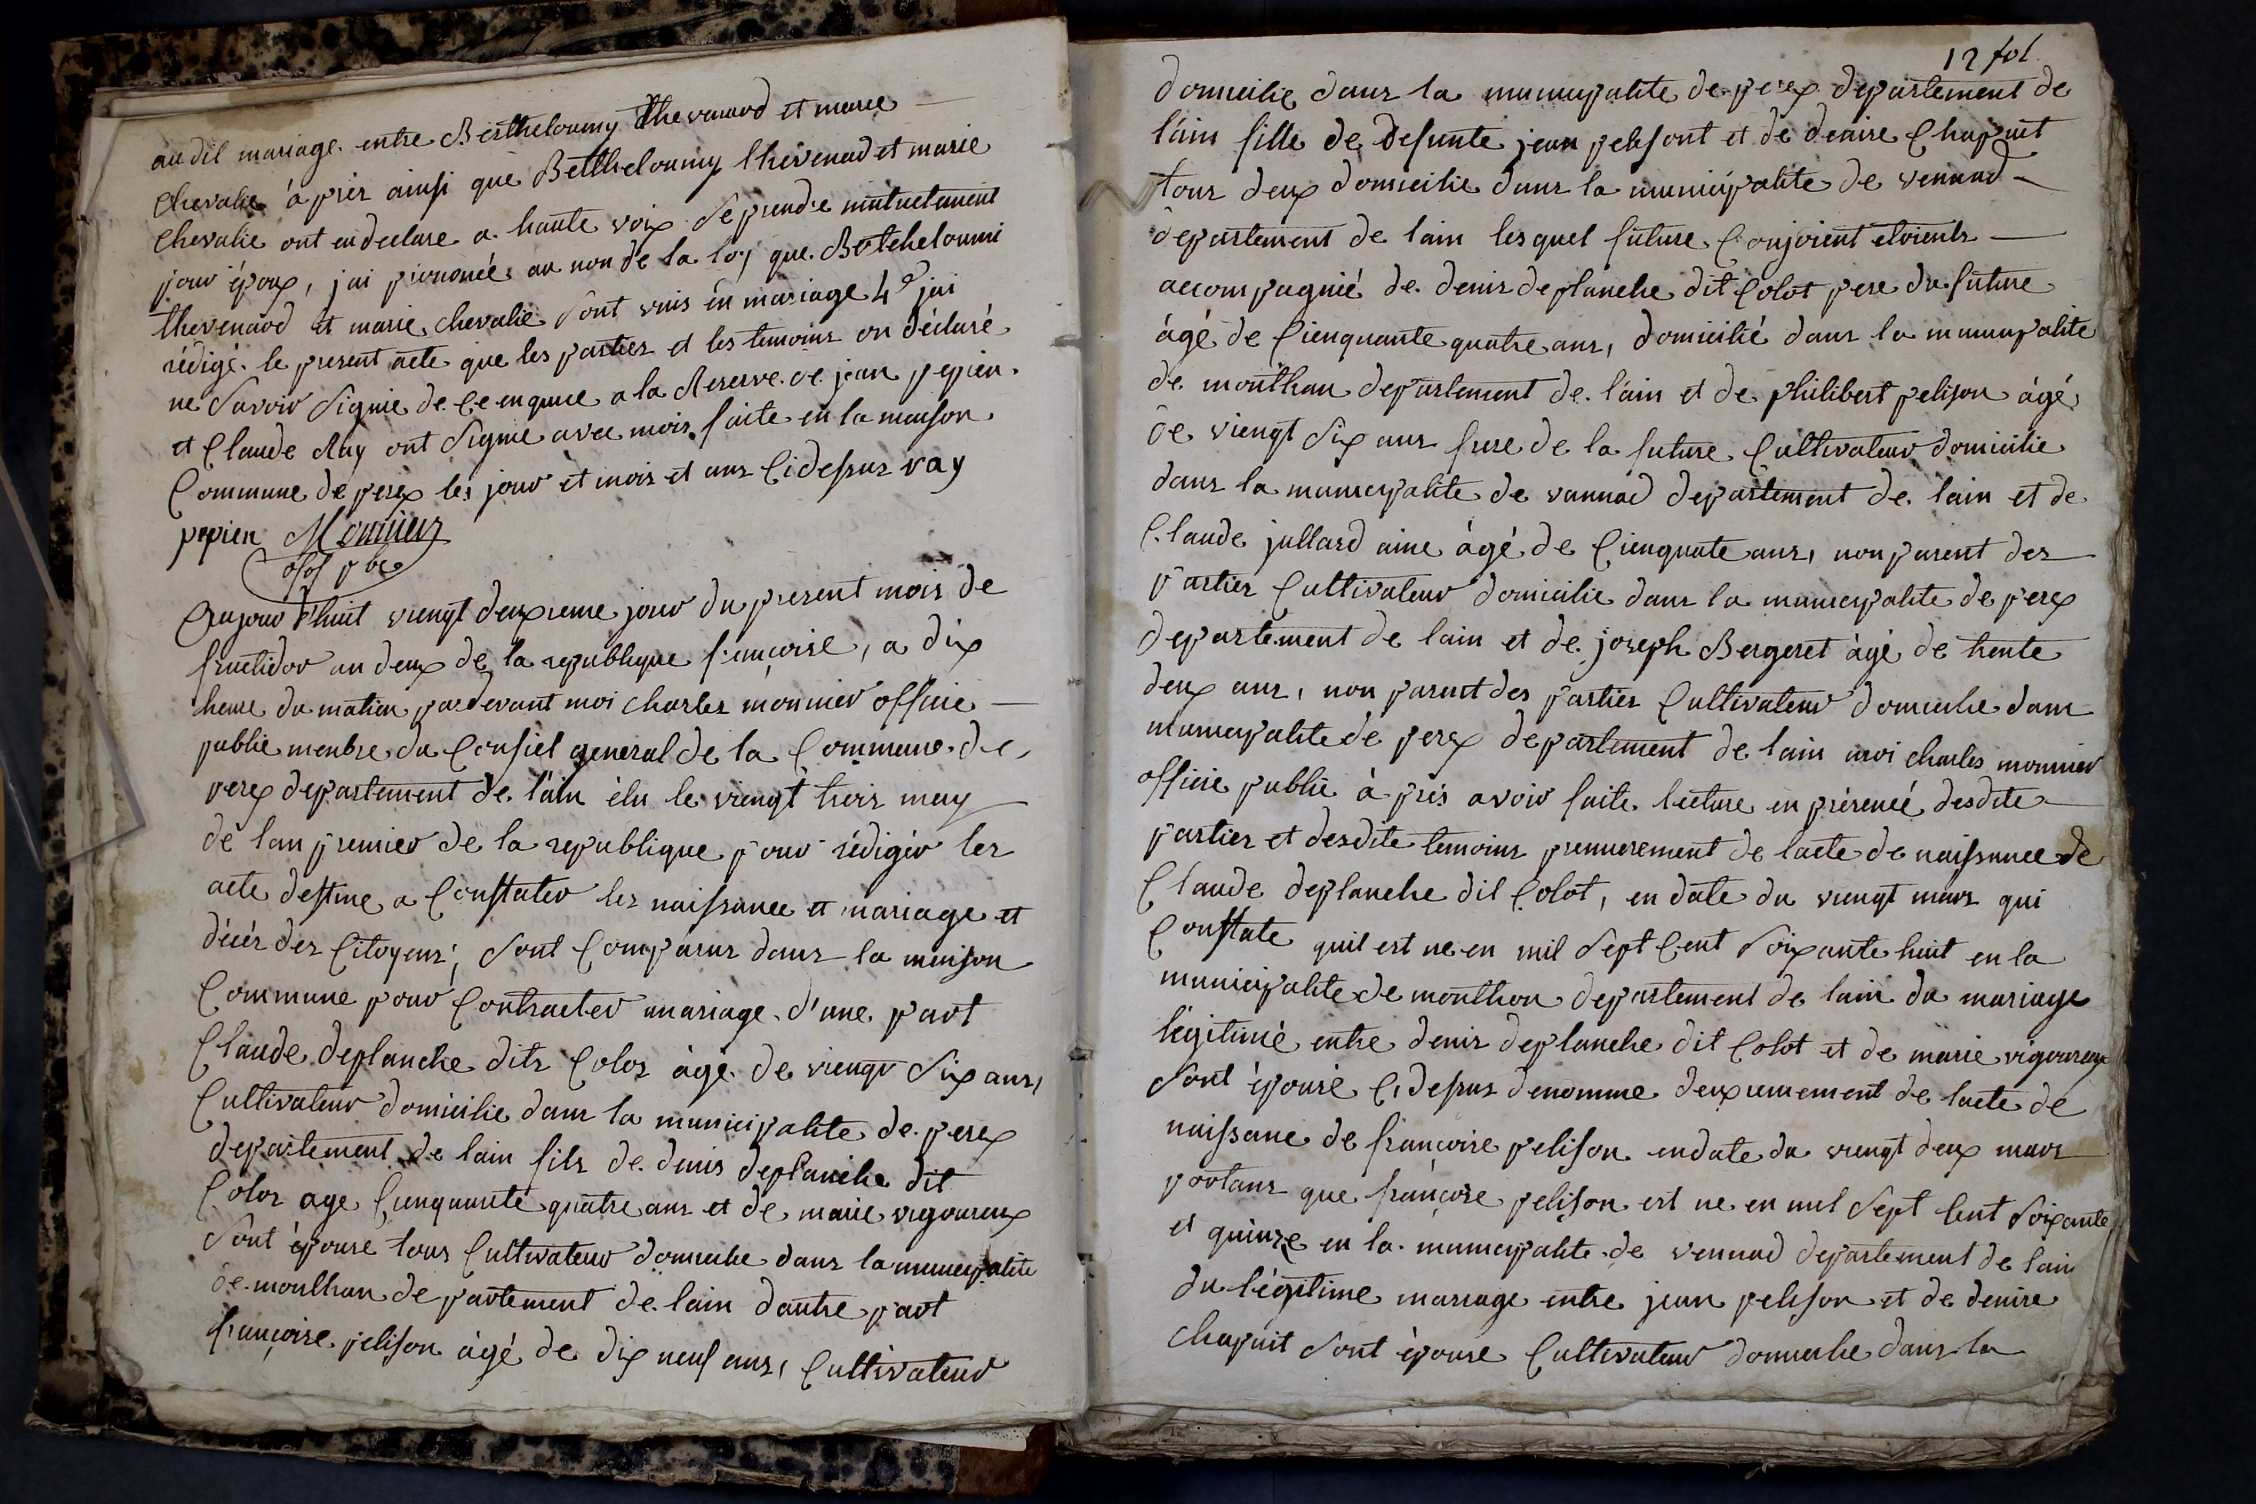 audit mariage entre Bertheloumy thevenard et marie
chevalie à près ainsi que Bettheloumy thevenad et marie
chevalie ont en declare a haute voix se prendre mutuelement
pour époux, jai prononcé au non de la loy que Botheloumi
thevenard et marie chevalie sont unis en mariage 4e jai
rédigé le present acte que les parties et les temoins on déclaré
ne savoir signie de ce enquuce a la Reserve de jean pepien
et Claude Ray ont signie avec mois faite en la maison
Commune de perex les jour et mois et ans Cidessus ray
pepien Monnier
off pbc
Aujourdhuit viengt deuxieme jour du present mois de
fructidor an deux de la republique françoise, a dix
heure du matien pardevant moi charles monnier officie
public menbre du Consiel general de la Commune de
perex departement de l'ain élu le viengt trois may
de lan premier de la republique pour rédigér les
acte destine a Constater les naissance et mariage et
décés des Citoyens; sont Comparus dans la maison
Commune pour Contracter mariage d'une part
Claude deplanche dits Colos àgé de viengt six ans,
Cultivateur domicilie dans la municipalite de perex
departement de lain fils de denis deplanche dit
Colos age Cinquante quatre ans et de marie vigoureux
sont èpouse tous Cultivateur domicilie dans la municipalite
de monthan departement de lain dautre part
françoise pelison àgé de dix neuf ans, Cultivateur
12 fol
domicilie dans la municipalite de perex departement de
l'ain fille de defunte jean pelisont et de denise Chapuit
tous deux domicilie dans la municipalite de vennad
departement de lain lesquel future Conjoient etoients
accompagnié de denis deplanche dit Colot pere du future
àgé de Cienquante quatre ans, domicilié dans la municipalite
de monthan departement de l'ain et de philibert pelison àgé
de viengt six ans frere de la future Cultivateur domicilie
dans la municipalite de vannad departement de lain et de
Claude jullard aine àgé de Cienquate ans, non parent des
parties Cultivateur domicilie dans la municipalite de perex
departement de lain et de joseph Bergeret àgé de trente
deux ans, non parent des parties Cultivateur domicilie dans
municipalite de perex departement de lain moi charles monnier
officie public à près avoir faite lecture en présencé desdite
parties et desdite temoins premierement de lacte de naissance de
Claude deplanche dit Colot, en date du viengt mars qui
Constate quil est ne en mil sept Cent soixante huit en la
municipalite de monthon departement de lain du mariage
légitimé entre denis deplanche dit Colot et de marie vigoureux
sont èpouse Cidessus denomme deuxiemement de lacte de
naissance de françoise pelison endate du viengt deux mars
portans que françoise pelison est ne en mil sept Cent soixante
et quinze en la municipalite de vennad departement de lain
du légitime mariage entre jean pelison et de denise
chapuit sont èpouse Cultivateur domicilie dans la